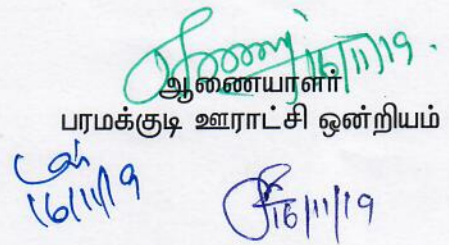 16/11/19.
ஆணையாளர்
பரமக்குடி ஊராட்சி ஒன்றியம்
16/11/19
16/11/19